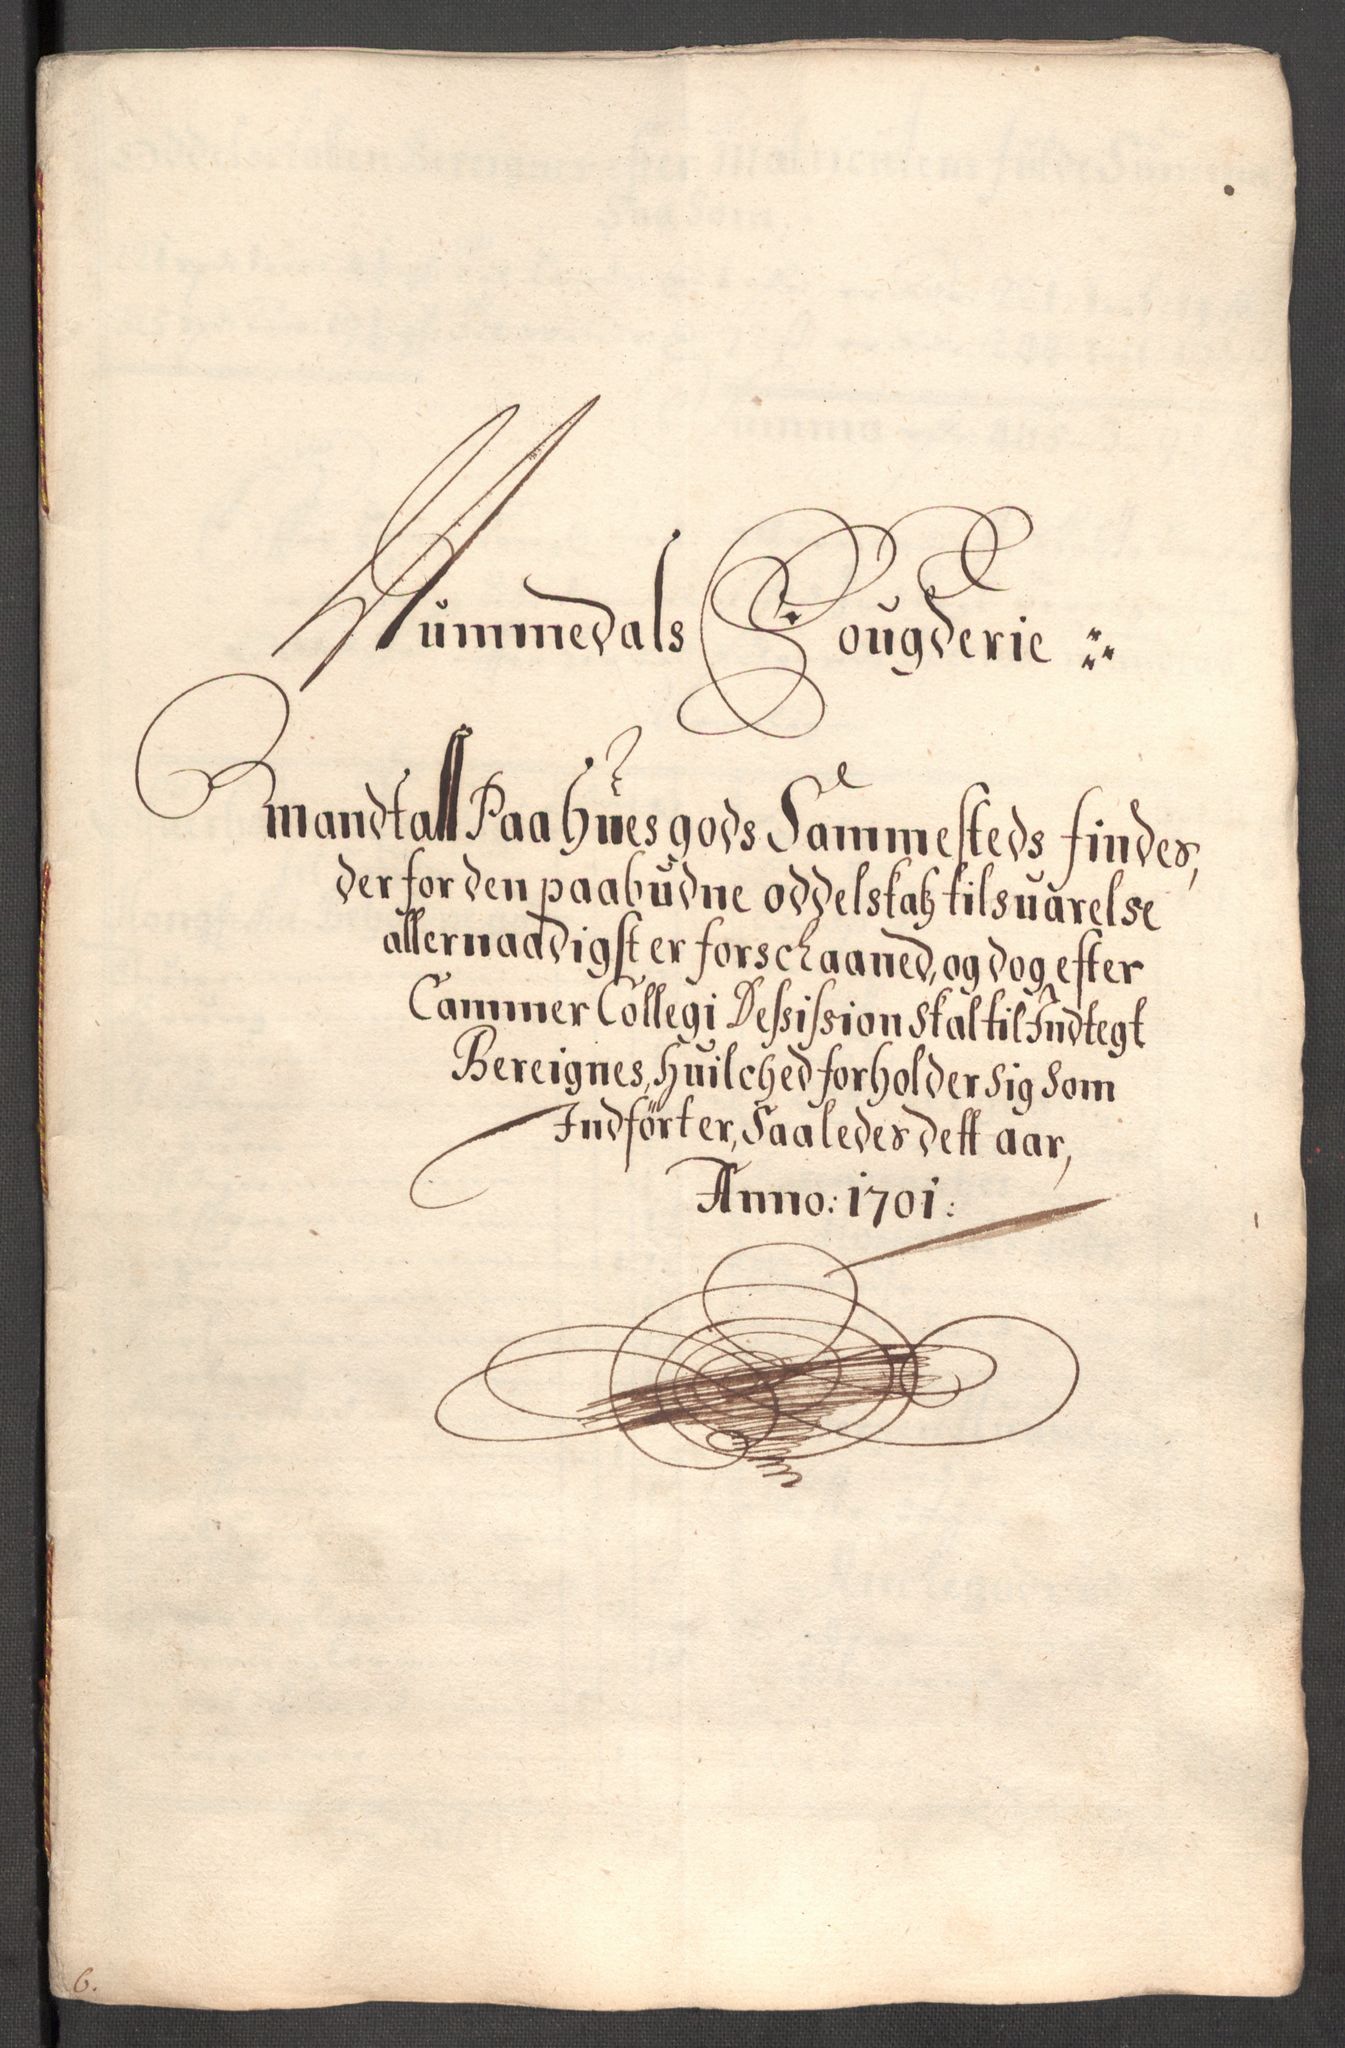 Nummedals Fougderie
mandtall Paa hues gods Sammesteds findes,
der for den paabudne oddelskatz tilsuarelse
allernaadigst er forschaaned, og dog efter
Cammer Collegi Dessission skal til Indtegt
Bereignes, huilched forholder sig som
Indfört er, Saaledes dett aar,
Anno: 1701:
6.